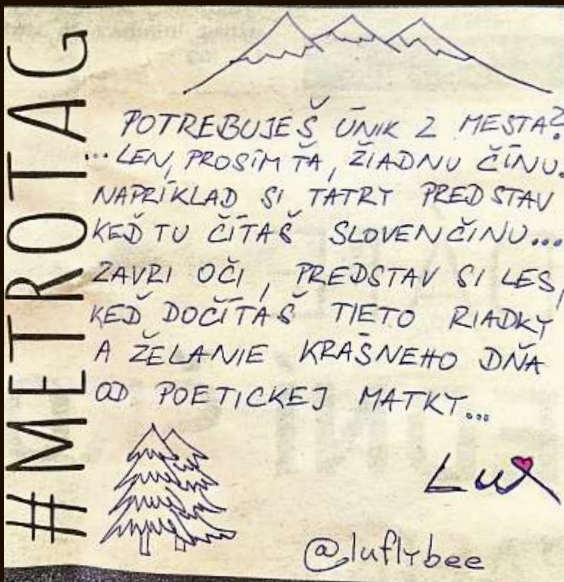 #METROTAG
POTREBUJEŠ ÚNIK Z MESTA?
...LEN, PROSÍM ŤA, ŽIADNU ČÍNU.
NAPRÍKLAD SI TATRY PREDSTAV
KEĎ TU ČÍTAŠ SLOVENČINU...
ZAVRI OČI, PREDSTAV SI LES,
KEĎ DOČÍTAŠ TIETO RIADKY
A ŽELANIE KRÁSNEHO DŇA
OD POETICKEJ MATKY...
Lux
@luflybee